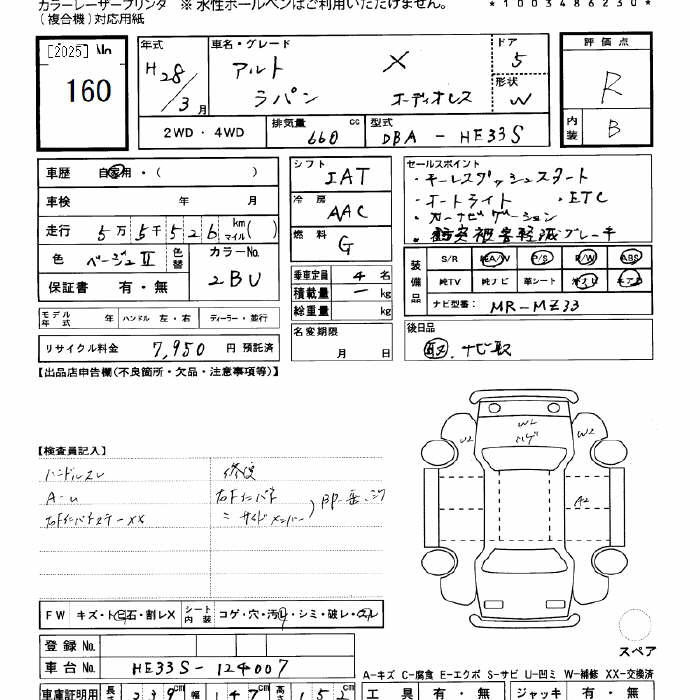 カラーレーザープリンタ ※ 水性ボールペンはご利用いただけません。
(複合機)対応用紙
*1003486230*
[2025] No
160
年式 車名・グレード ドア 評価点
H28 アルト X 5 R
/3月 ラパン オーディオレス 形状 W
2WD・4WD 排気量 660 cc 型式 DBA - HE33S 内装 B
車歴 自家用・( )
車検 年 月
走行 5万5千526 km マイル( )
色 ベージュⅡ 色替 カラーNo. 2BU
保証書 有・無
シフト IAT
冷房 AAC
燃料 G
乗車定員 4 名
積載量 ー kg
総重量 kg
セールスポイント
・キーレスプッシュスタート
・オートライト ・ETC
・カーナビゲーション
・衝突被害軽減ブレーキ
装備品 S/R 純A/W P/S P/W ABS
純TV 純ナビ 革シート
ナビ型番: MR-MZ33
モデル年式 年 ハンドル 左・右 ディーラー・並行
名変期限 月 日
後日品
取、ナビ取
リサイクル料金 7,950 円 預託済
【出品店申告欄(不良箇所・欠品・注意事項等)】
【検査員記入】
ハンドルスレ 修復
A-U 右Fインパネ
右FインパネステーXX ミサイドメンバー
W2 WL ハゲ W2
A2
FW キズ・ト石・割レX シート内装 コゲ・穴・汚レ・シミ・破レ・スレ
登録 No.
車台 No. HE33S-124007
スペア
A-キズ C-腐食 E-エクボ S-サビ U-凹ミ W-補修 XX-交換済
車庫証明用 長さ 339cm 幅 147cm 高さ 152cm
工具 有・無 ジャッキ 有・無